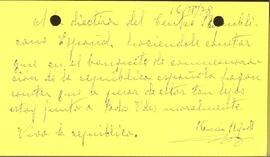 director del Centro Republi
cano Español, haciendole constar
que en el banquete de conmemora
ción de la república española hagan
constar que a pesar de estar tan lejos
estoy junto a todos Vdes moralmente.
Viva la república.